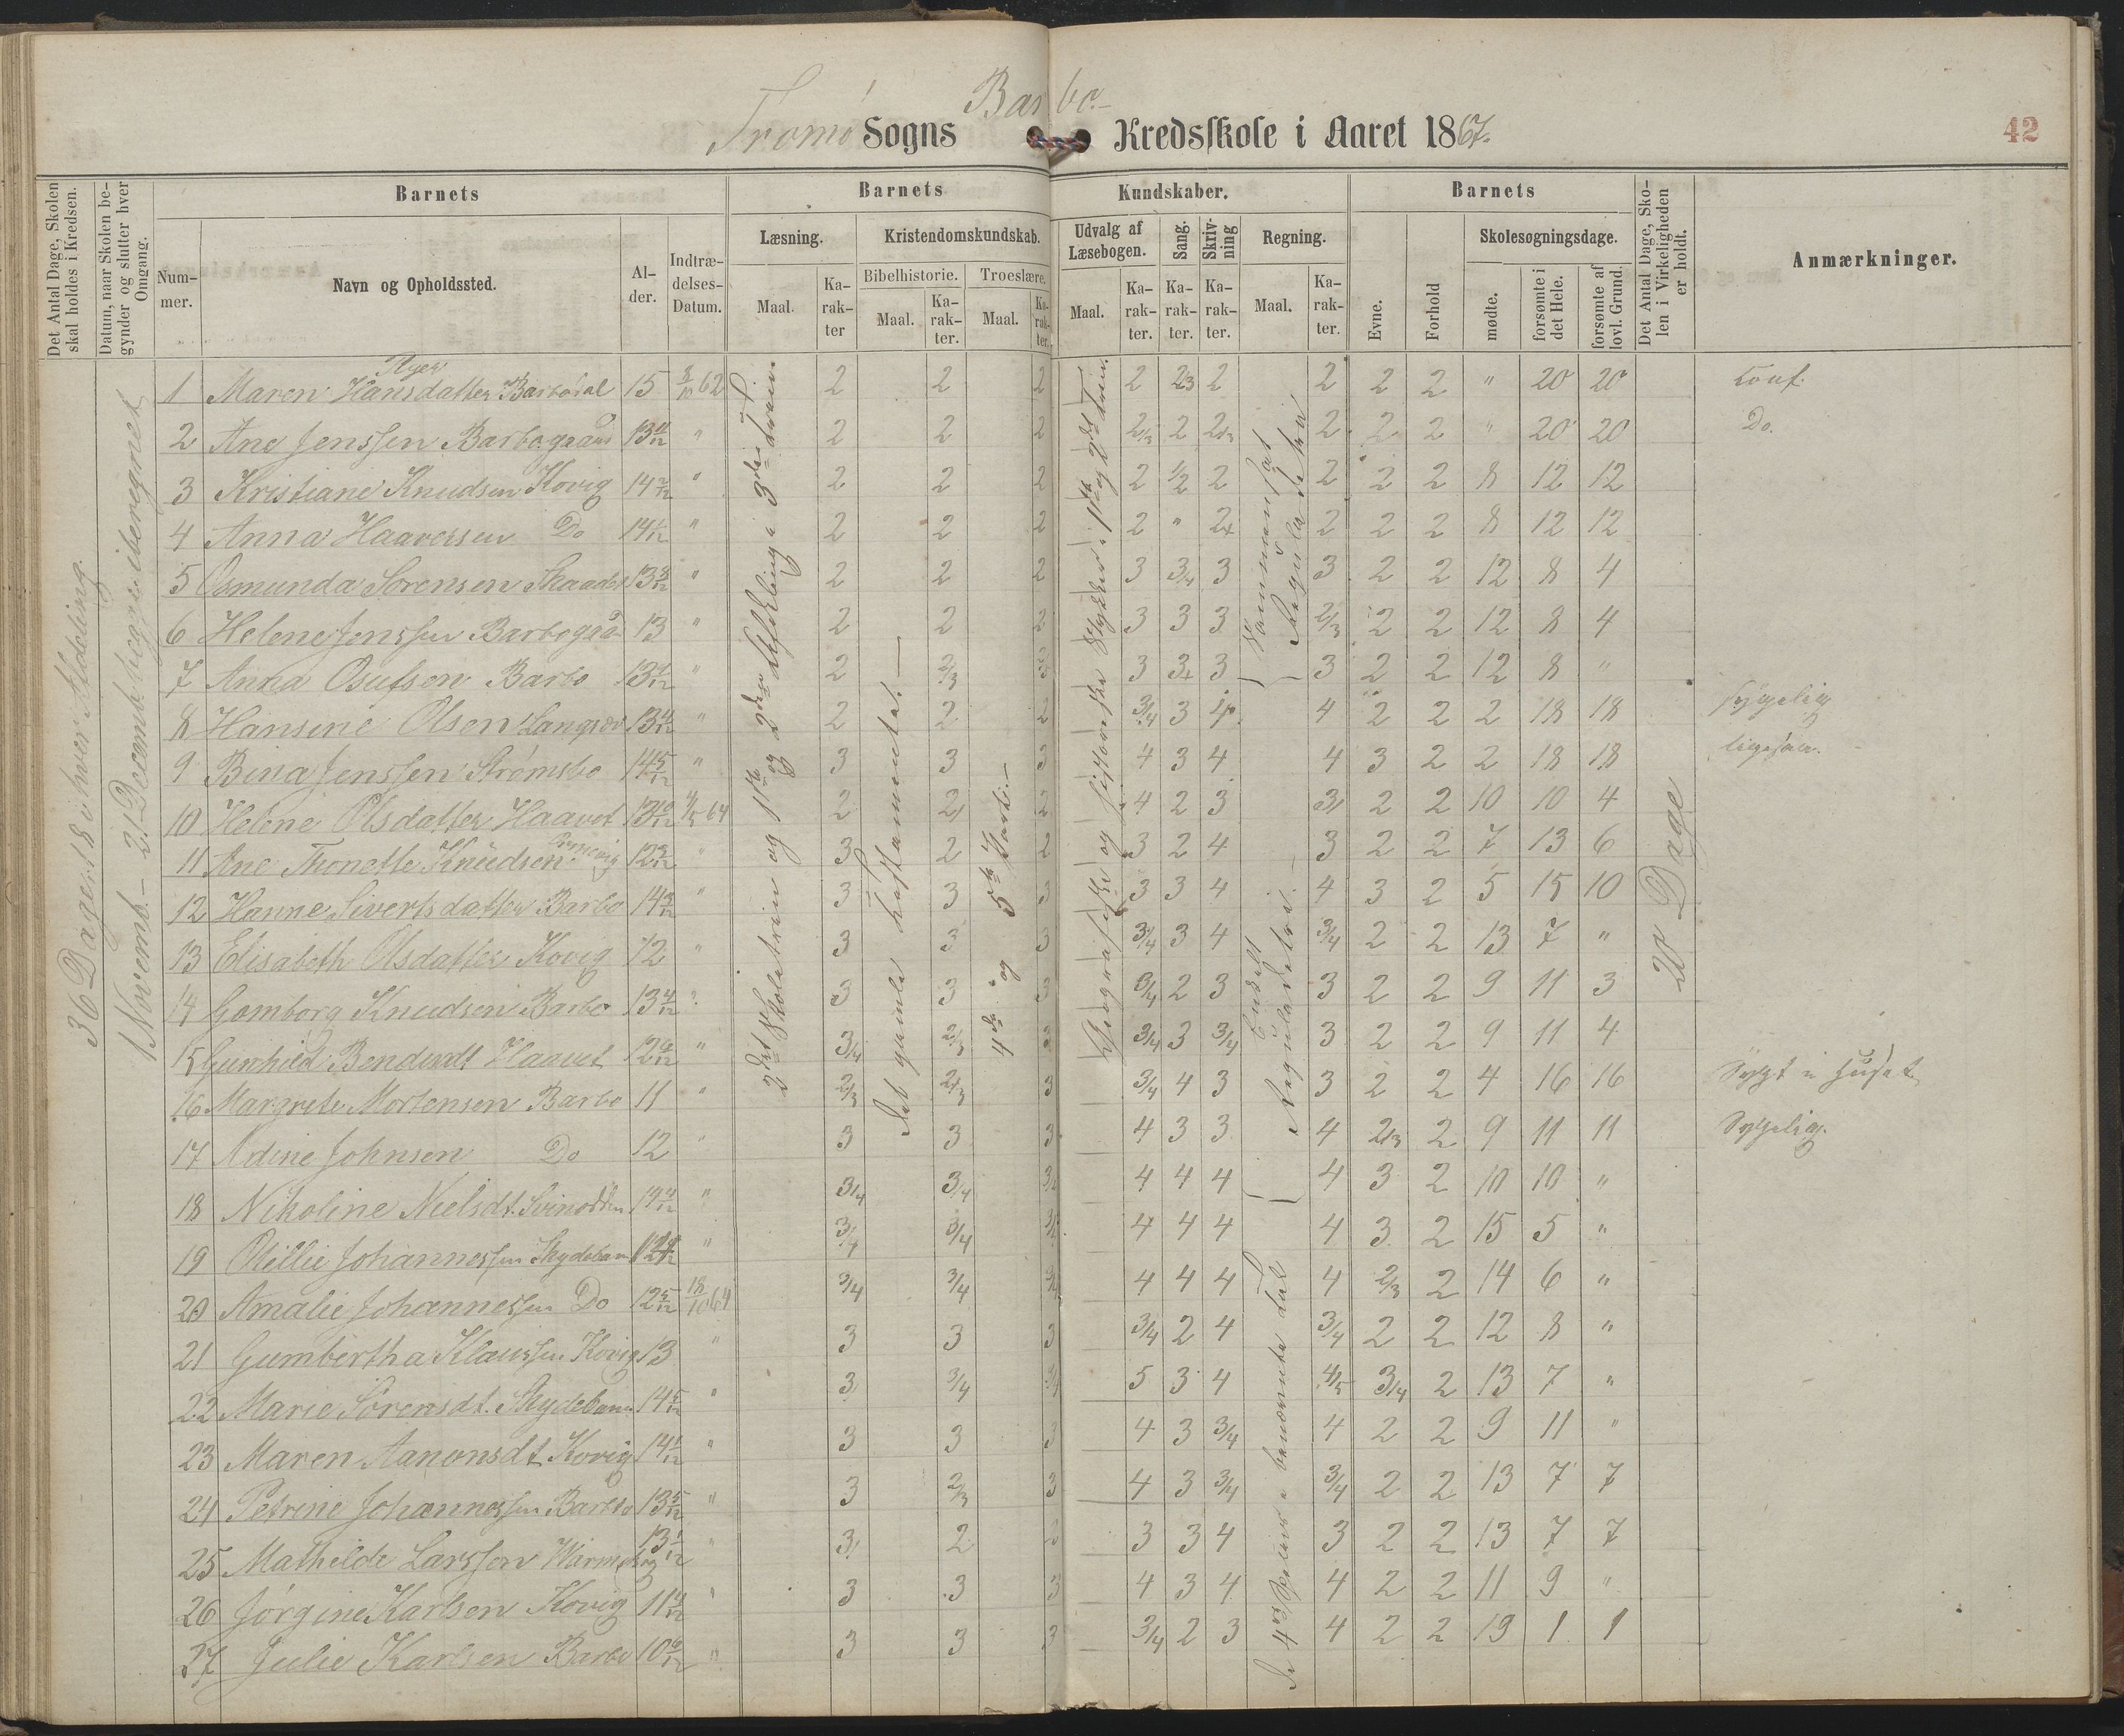 Barbo
Tromø Sogns Kredsskole i Aaret 1867.
42
Det Antal Dage, Skolen skal holdes i Kredsen.
Datum, naar Skolen begynder og slutter hver Omgang.
Barnets
Barnets
Kundskaber.
Barnets
Det Antal Dage, Skolen i Virkeligheden er holdt.
Anmærkninger.
Læsning.
Kristendomskundskab.
Udvalg af Læsebogen.
Sang.
Skrivning
Regning.
Skolesøgningsdage.
Nummer.
Navn og Opholdssted.
Alder.
Indtrædelses-Datum.
Bibelhistorie.
Troeslære.
Maal.
Karakter
Maal.
Karakter.
Maal.
Karakter.
Maal.
Karakter.
Karakter.
Karakter.
Maal.
Karakter.
Evne.
Forhold
mødte.
forsømte i det Hele.
forsømte af lovl. Grund.
36 Dage: 18 i hver Afdeling.
1 Novemb. – 21 Decemb. begge iberegnet
1 Maren Hansdatter Barbodal 15 8/10 62 2 2 2 2 23 2 2 2 2 " 20 20 Conf.
2 Ane Jenssen Barbogaard 13 " 2 2 2 2/3 2 2/3 2 2 2 " 20 20 Do.
3 Kristiane Knudsen Kovig 14 " 2 2 2 2 1/2 2 2 2 2 8 12 12
4 Anna Haaversen Do 14 " 2 2 2 2 " 2+ 2 2 2 8 12 12
5 Osmunda Sørensen " 2 2 2 3 3/4 3 3 2 2 12 8 4
6 Helene Jenssen Barbogaa 13 " 2 2 2 3 3 3 2/3 2 2 12 8 4
7 Anna Osufsen Barbo 13 " 2 2/3 3 3+ 3 3 2 2 12 8 "
8 Hansine Olsen Langsæ 13 " 2 2 2 3/4 3 4 2 2 2 18 18 sygelig
9 Bina Jenssen Strømsbo 14 5/12 " 3 3 3 4 3 4 4 3 2 2 18 18 ligesaa.
10 Helene Olsdatter Haavet 13 64 2 2 2 4 2 3 3 2 2 10 10 4
11 Ane Thonette Knudsen 12 " 3 2 2 3 2 4 3 2 2 7 13 6
12 Hanne Sivertsdatter Barbo 14 " 3 3 3 3 3 4 4 3 2 5 15 10
13 Elisabeth Olsdatter Kovig 12 " 3 3 3 3/4 3 4 3/4 2 2 13 7 "
14 Gomborg Knudsen Barbo 13 4/12 " 3 3 3 3/4 2 3 3 2 2 9 11 3
15 Gunhild Bendixdt Haavet 12 " 3/4 2/3 3 3/4 3 3/4 3 2 2 9 11 4
16 Margrete Mortensen Barbo 11 " 2/3 2/3 3 3/4 4 3 3 2 2 4 16 16 Sygt i Huset
17 Adine Johnsen Do 12 " 3 3 3 4 3 3 4 2/3 2 9 11 11 Sygelig.
18 Nikoline Nielsdt. Svinodden " 3/4 3/4 3/4 4 4 4 4 3 2 10 10 "
19 Ottillie Johannessen Skydebane " 3/4 3/4 4 4 4 4 3 2 15 5 "
20 Amalie Johannessen Do 12 5/12 18/10 64 3/4 3/4 4 4 4 4 2/3 2 14 6 "
21 Gumbertha Klaussen Kovig 13 " 3 3 3 3/4 2 4 3/4 2 2 12 8 "
22 Marie Sørensdt. Skydebane 14 5/12 " 3 3/4 5 3 4 4/5 3/4 2 13 7 "
23 Maren Aanonsdt Kovig 14 " 3 3 3 4 3 3/4 4 2 2 9 11 "
24 Petrine Johannessen Barbo 13 5/12 " 3 2/3 3 4 3 3/4 3/4 2 2 13 7 7
25 Mathilde Larssen 13 1/12 " 3 2 2 3 3 4 3 2 2 13 7 7
26 Jørgine Karlsen Kovig 11 " 3 3 3 4 3 4 4 2 2 11 9 "
27 Julie Karlsen Barbo 10 " 3 3 3 3/4 2 3 4 2 2 19 1 1
2det Skoletrin og 1ste og 2den Afdeling i 3die Trin.
Det gamle Testamentet. –
4de og 5te Part. –
Geografiske og historiske Stykker i 1ste og 2det Trin.
Sammensat Reguladetri
Enkelt Reguladetri. –
De 4 Specier i benævnte Tal
20 Dage